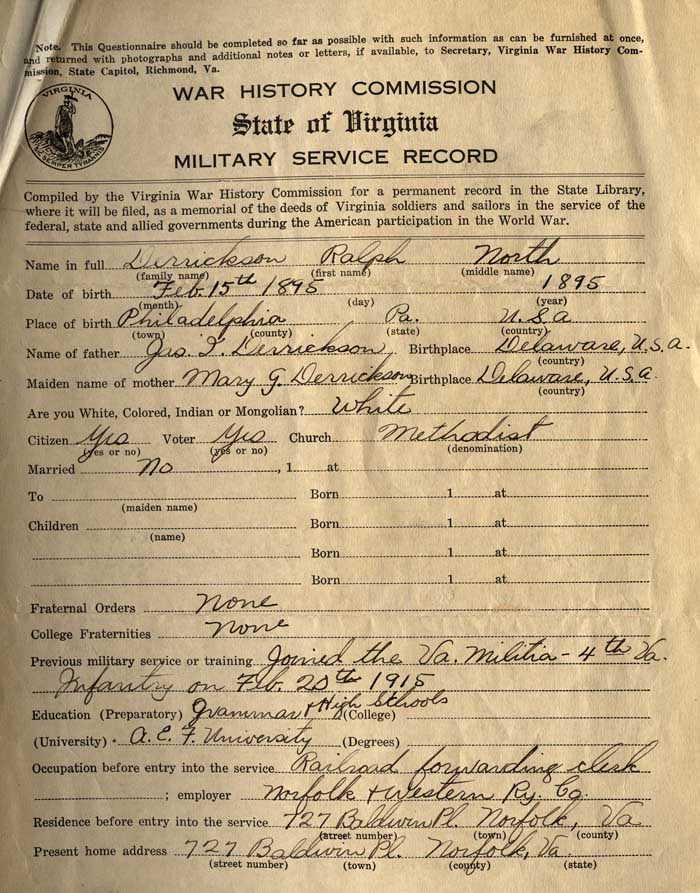 Note. This Questionnaire should be completed so far as possible with such information as can be furnished at once,
and returned with photographs and additional notes or letters, if available, to Secretary, Virginia War History Com-
mission, State Capitol, Richmond, Va.
VIRGINIA
SIC SEMPER TYRANNIS
WAR HISTORY COMMISSION
State of Virginia
MILITARY SERVICE RECORD
Compiled by the Virginia War History Commission for a permanent record in the State Library,
where it will be filed, as a memorial of the deeds of Virginia soldiers and sailors in the service of the
federal, state and allied governments during the American participation in the World War.
Name in full Derrickson Ralph North
(family name) (first name) (middle name)
Date of birth Feb. 15th 1895 1895
(month) (day) (year)
Place of birth Philadelphia Pa. U.S.a
(town) (county) (state) (country)
Name of father Jas. T. Derrickson Birthplace Delaware, U.S.a.
(country)
Maiden name of mother Mary G. Derrickson Birthplace Delaware, U.S.a.
(country)
Are you White, Colored, Indian or Mongolian? White
Citizen Yes Voter Yes Church Methodist
(yes or no) (yes or no) (denomination)
Married No , 1 at
To Born 1 at
(maiden name)
Children Born 1 at
(name)
Born 1 at
Born 1 at
Fraternal Orders None
College Fraternities None
Previous military service or training Joined the Va. Militia - 4th Va.
Infantry on Feb. 20th 1915
Education (Preparatory) Grammar & High Schools (College)
(University) A.E.F. University (Degrees)
Occupation before entry into the service Railroad forwarding clerk
; employer Norfolk & Western Ry. Co.
Residence before entry into the service 727 Baldwin Pl. Norfolk, Va.
(street number) (town) (county)
Present home address 727 Baldwin Pl. Norfolk, Va.
(street number) (town) (county) (state)